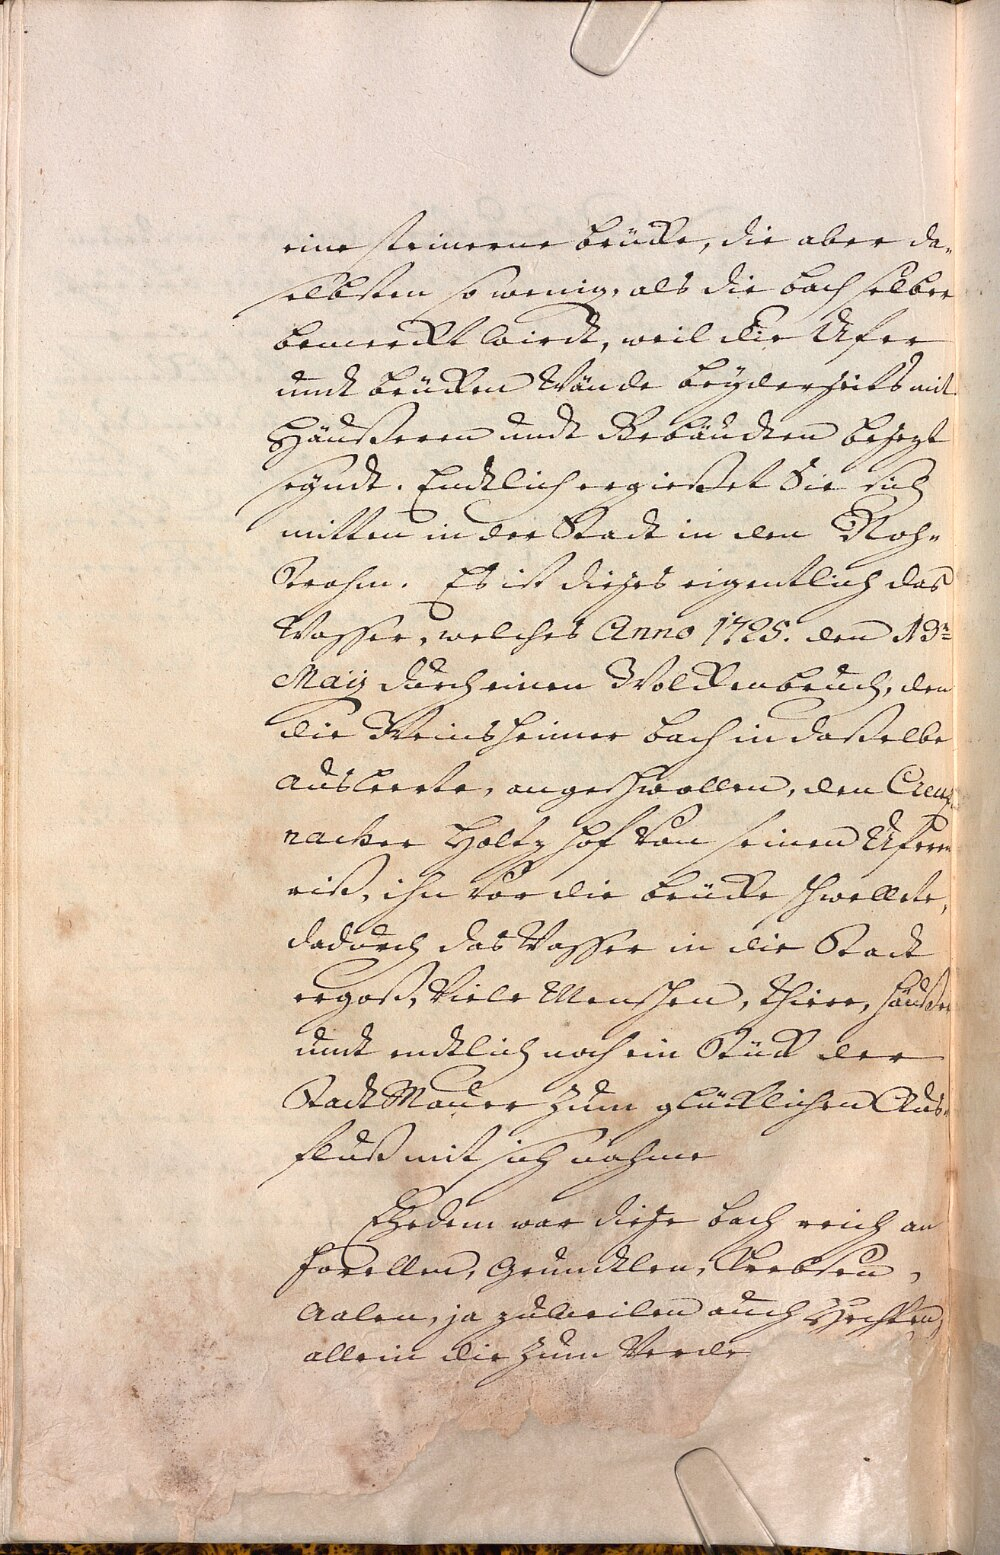 eine steinerne brücke, die aber da-
selbsten so wenig, als die bach selber
bemerckt wirdt, weil die Ufer
undt brücken Wände beyderseits mit
Häußeren undt Gebäudten besezt
seyndt. Endtlich ergießet Sie sich
mitten in der Stadt in den Noh-
Strohm. Es ist dieses eigentlich das
Wasser, welches Anno 1725. den 13n
Maÿ durch einen Wolckenbruch, den
die Weinsheimer bach in daßelbe
ausleerte, angeschwollen, den Creuz
nacher Holtz hof von seinen Uferen
riß, ihn vor die brücke schwellete,
dadurch das Wasser in die Stadt
ergoß, Viele Menschen, Thiere, häußer
undt endtlich noch ein Stück der
Stadt Mauer zum glücklichen Aus-
fluß mit sich nahme
Ehedem war diese bach reich an
forellen, Grundtlen, Krebsen,
Aalen, ja zuweilen auch Hechten,
allein die zum Verde